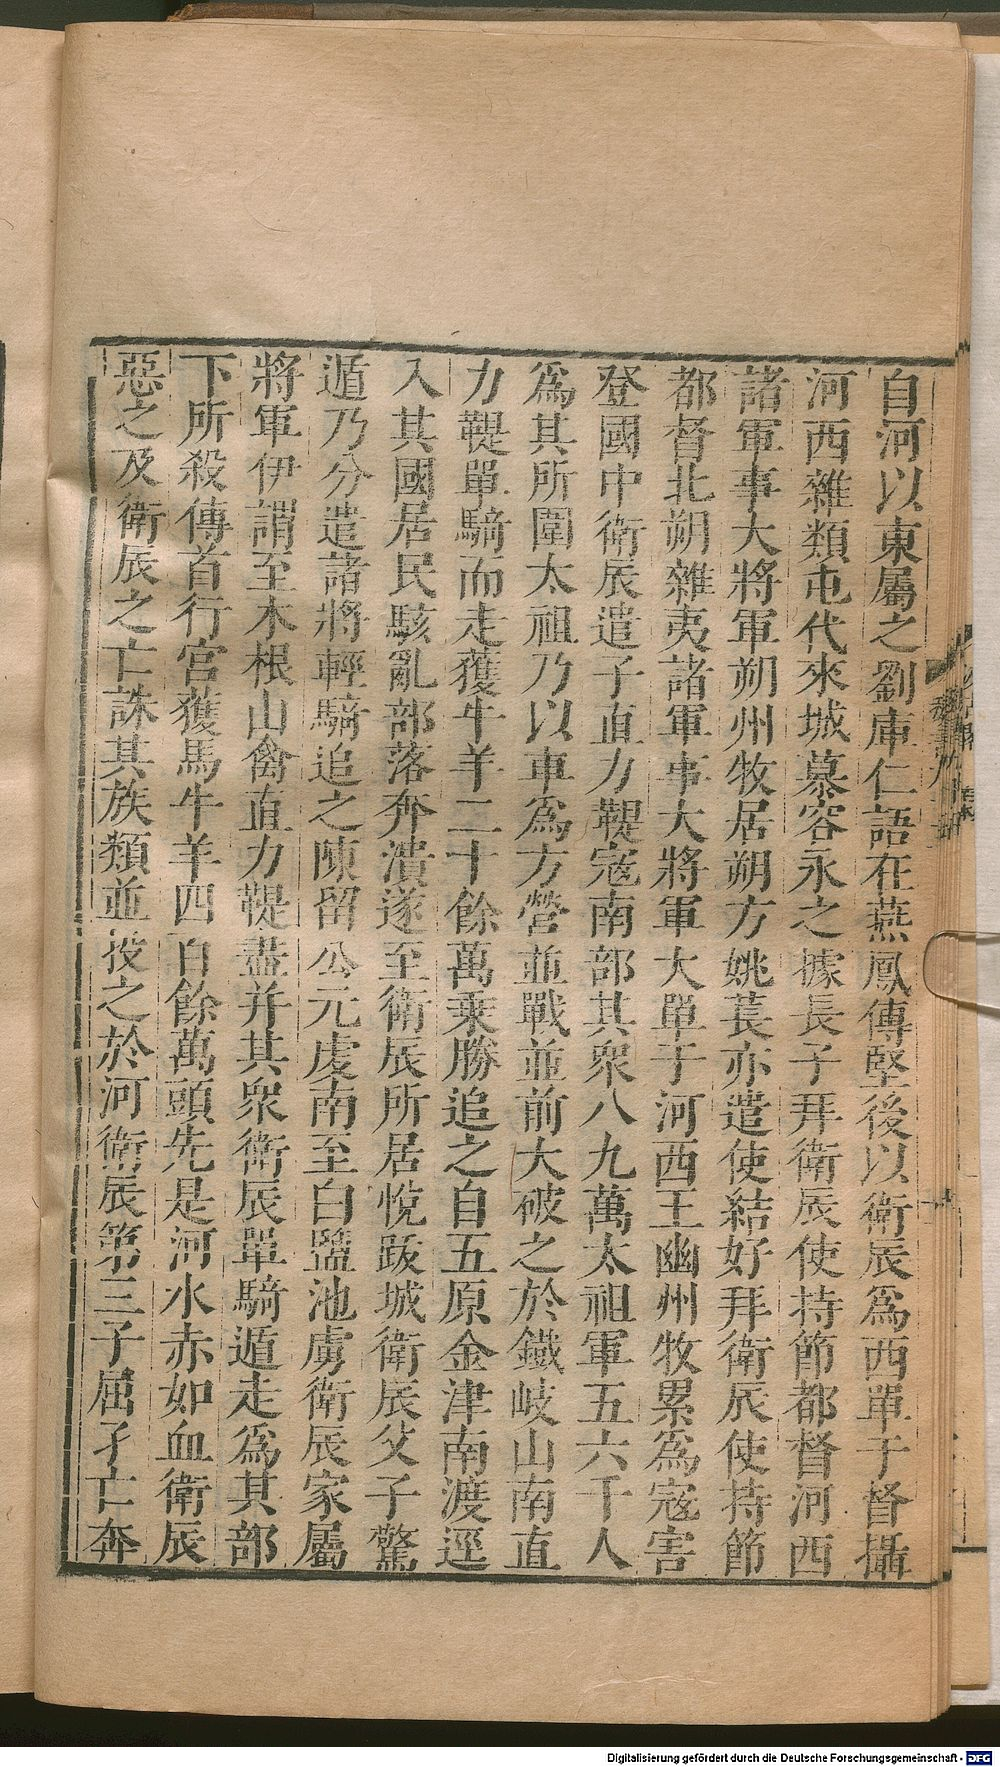 自河以東屬之劉庫仁語在燕鳳傳堅後以衛辰爲西單于督攝
河西雜類屯代來城慕容永之據長子拜衛辰使持節都督河西
諸軍事大將軍朔州牧居朔方姚萇亦遣使結好拜衛辰使持節
都督北朔雜夷諸軍事大將軍大單于河西王幽州牧累爲寇害
登國中衛辰遣子直力鞮寇南部其衆八九萬太祖軍五六千人
爲其所圍太祖乃以車爲方營並戰並前大破之於鐵岐山南直
力鞮單騎而走獲牛羊二十餘萬乘勝追之自五原金津南渡逕
入其國居民駭亂部落奔潰遂至衛辰所居悅跋城衛辰父子驚
遁乃分遣諸將輕騎追之陳留公元虔南至白鹽池虜衛辰家屬
將軍伊謂至木根山禽直力鞮盡并其衆衛辰單騎遁走爲其部
下所殺傳首行宮獲馬牛羊四百餘萬頭先是河水赤如血衛辰
惡之及衛辰之亡誅其族類並投之於河衛辰第三子屈孑亡奔
Digitalisierung gefördert durch die Deutsche Forschungsgemeinschaft - DFG